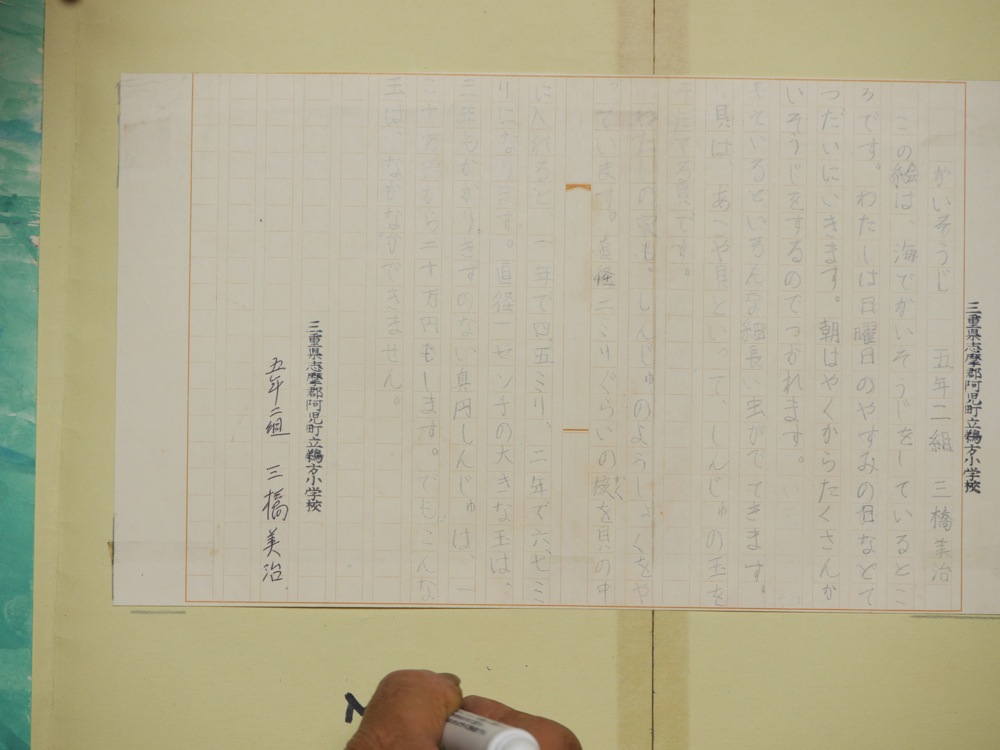 三重県志摩郡阿児町立鵜方小学校
かいそうじ 五年二組 三橋美治
この絵は、海でかいそうじをしているとこ
ろです。わたしは日曜日のやすみの日などて
つだいにいきます。朝はやくからたくさんか
いそうじをするのでつかれます。
いろんな組長、虫がでてきます。
貝は、あこや貝といって、しんじゅの玉を
てる貝です。
わたしの家も、しんじゅのようしょくをや
っています。直径二ミリぐらいの核を貝の中
かく
に入れると、一年で四、五ミリ、二年で六、七ミ
リになります。直径一センチの大きな玉は、
三年もかかり、きずのない真円しんじゅは一
二十万円もします。でもこんな
玉は、なかなかできません。
三重県志摩郡阿児町立鵜方小学校
五年二組 三橋美治